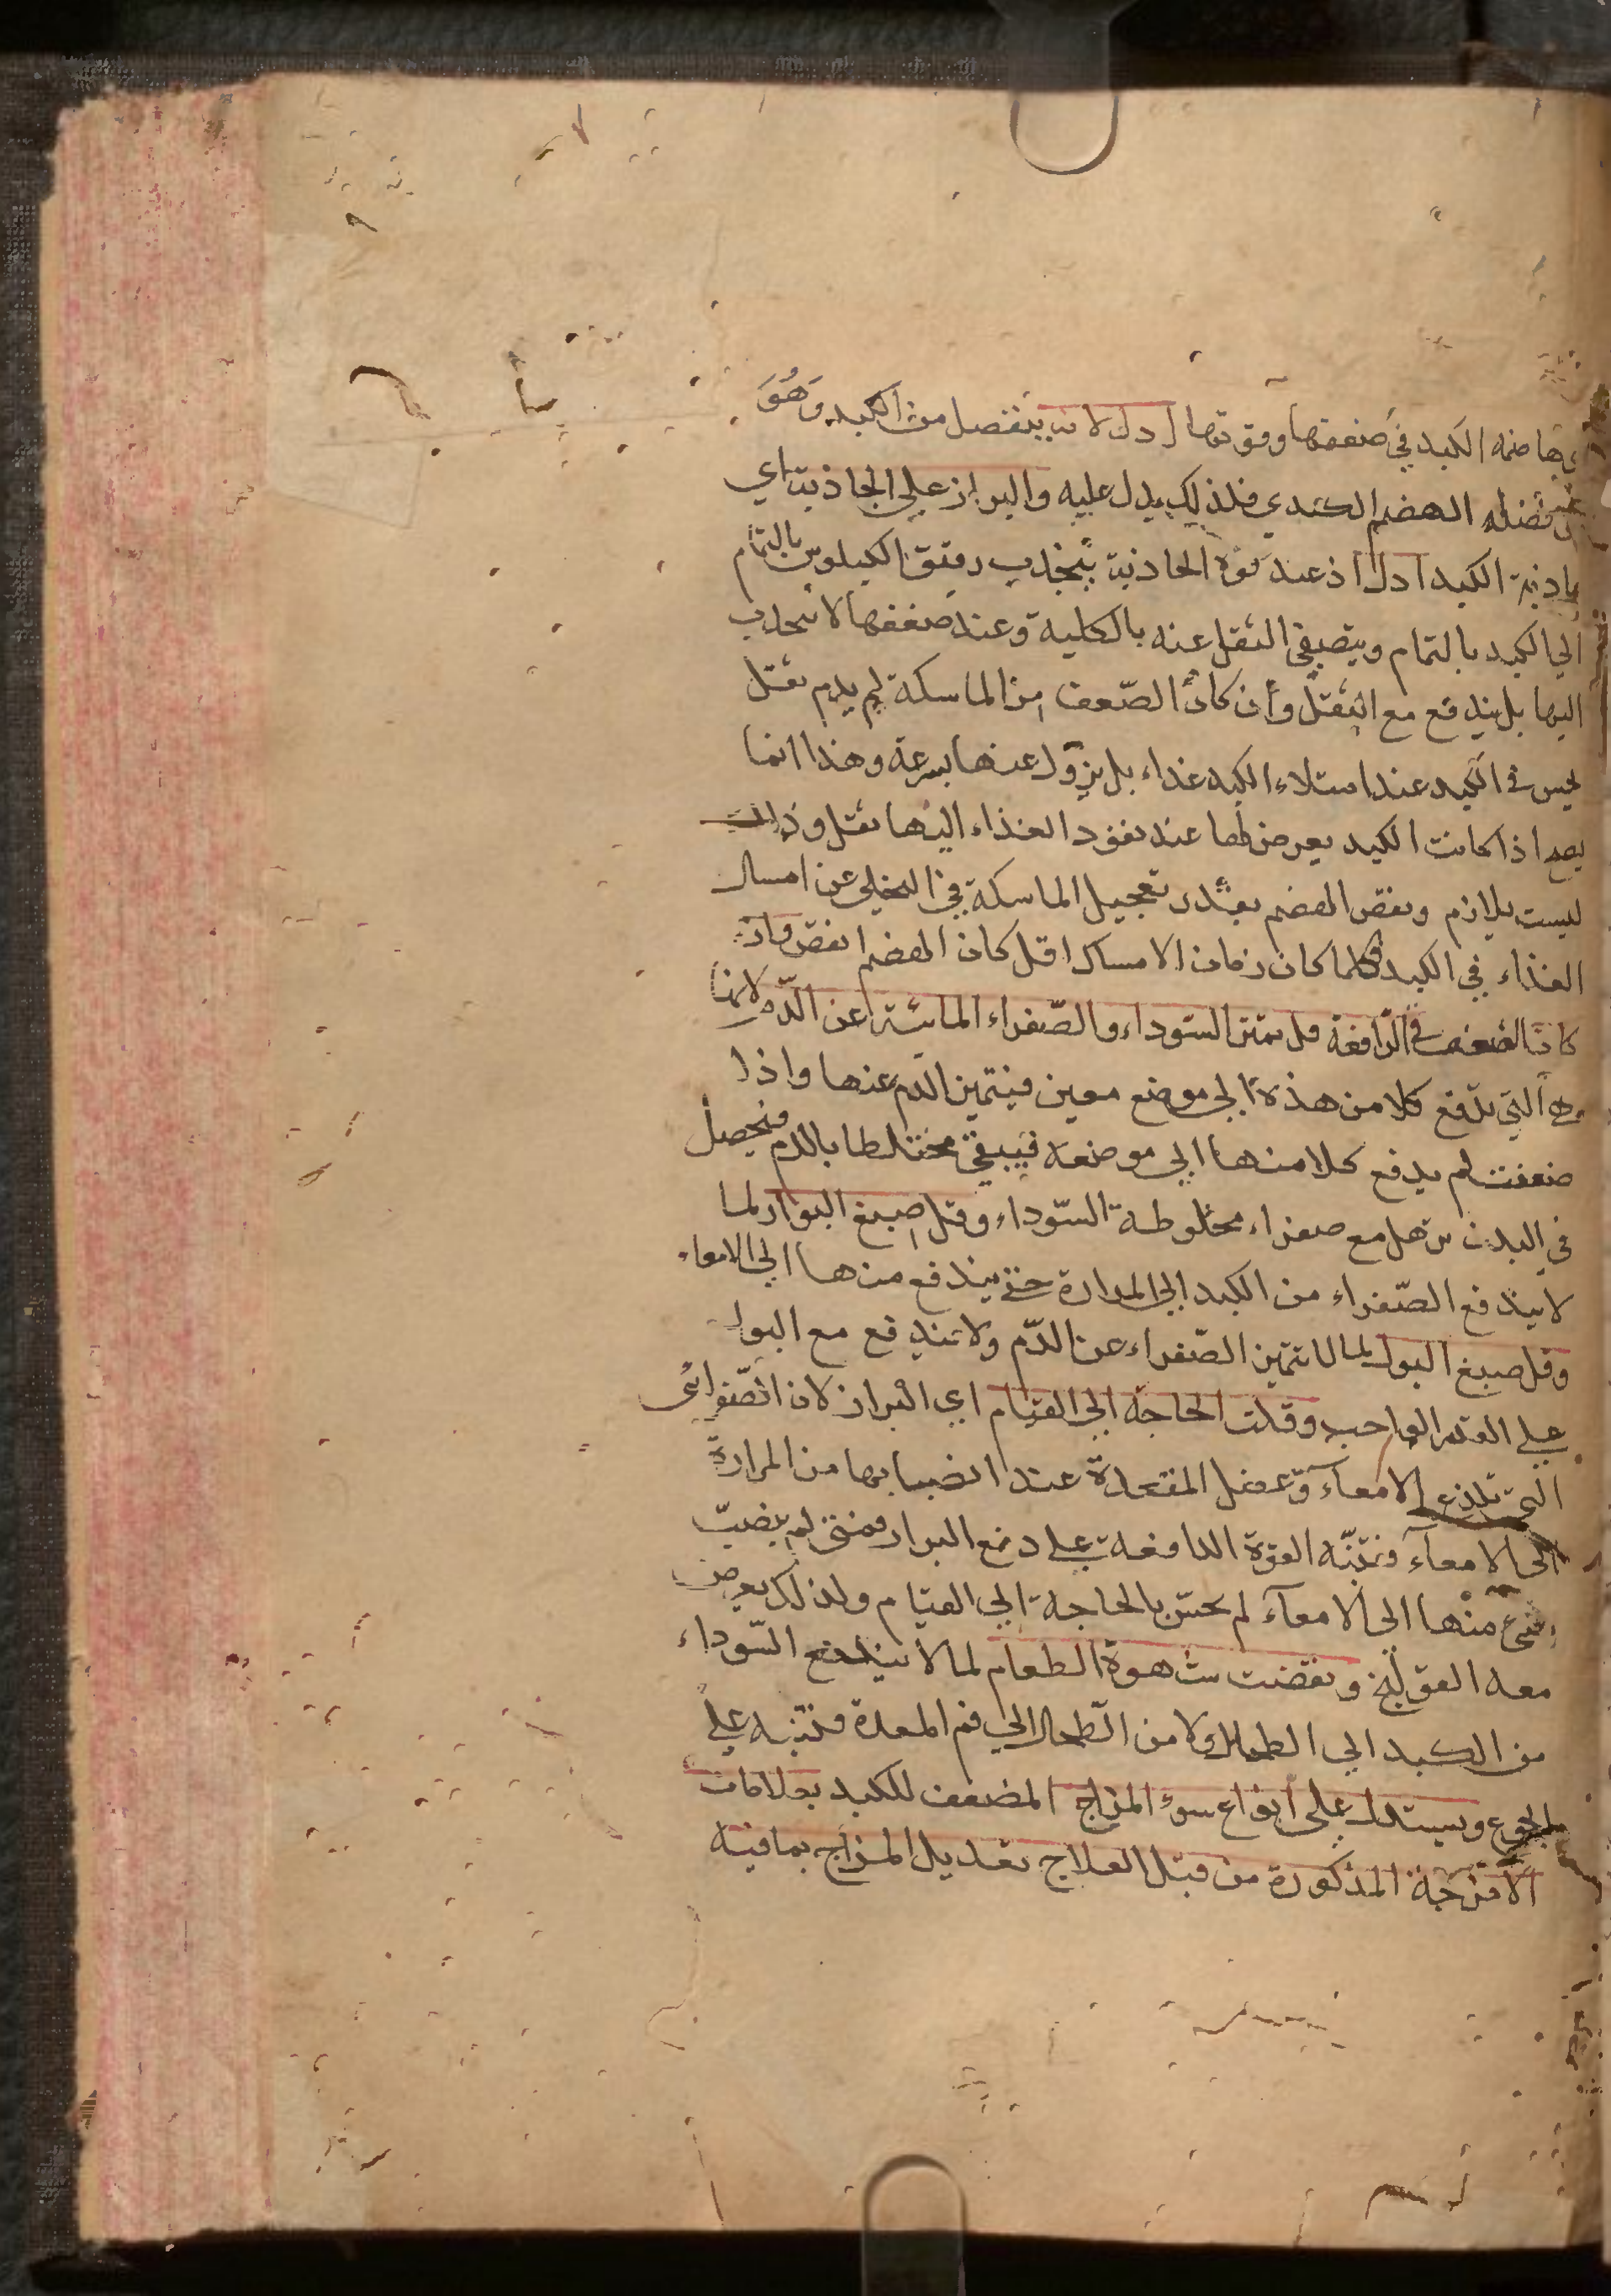 هاضمة الكبد في ضعفها وقوتها ادل لانه ينفصل من الكبد وَهُوَ
فضله الهضم الكبدي فلذلك يدل عليه والبراز علي الجاذبة اي
جاذبة الكبد ادل اذ عند قوة الجاذبة ينجذب رقيق الكيلوس بالتمام
الي الكبد بالتمام ويتصفي الثقل عنه بالكلية وعند ضعفها لا ينجذب
اليها بل يندفع مع الثقل وان كان الضّعف من الماسكة لم يدم ثقل
يحس في الكبد عند امتلاء الكبد غذاء بل يزول عنها بسرعة وهذا انما
يصح اذا كانت الكبد يعرض لها عند نفوذ الغذاء اليها ثقل وذلك
ليست بلازم ونقص الهضم بقدر تعجيل الماسكة في التخلي عن امساك
الغذاء في الكبد فكلما كان زمان الامساك اقل كان الهضم انقص وان
كان الضعف في الدّافعة قل تميّز السّوداء والصّفراء المائية عن الدّم لانها
هي التي تدفع كلا من هذه الي موضع معين فيتميز الدم عنها واذا
ضعفت لم يدفع كلا منها الي موضعه فيبقي مختلطا بالدم فيحصل
في البدن ترهل مع صفراء مخلوطة السّوداء وقل صبغ البراز لما
لا يندفع الصّفراء من الكبد الي المرارة حتي يندفع منها الي الامعاء
وقل صبغ البول لما لا تتميز الصّفراء عن الدّم ولا تندفع مع البول
علي القدر الواجب وقلت الحاجة الي القيام اي البراز لان الصّفراء
التي تلذع الامعآء وعضل المقعدة عند انصبابها من المرارة
الي الامعآء وتنبّه القوة الدافعة علي دفع البراز فمتي لم ينصبّ
شئ منها الي الامعآء لم يحسّ بالحاجة الي القيام ولذلك يعرض
معه القولنج ونقصت شهوة الطعام لما لا يندفع السّوداء
من الكبد الي الطحال ولا من الطّحال الي فم المعدة فتنبه علي
الجوع ويستدل علي انواع سوء المزاج المضعف للكبد بعلامات
الامزجة المذكورة من قبل العلاج تعديل المزاج بما فيه